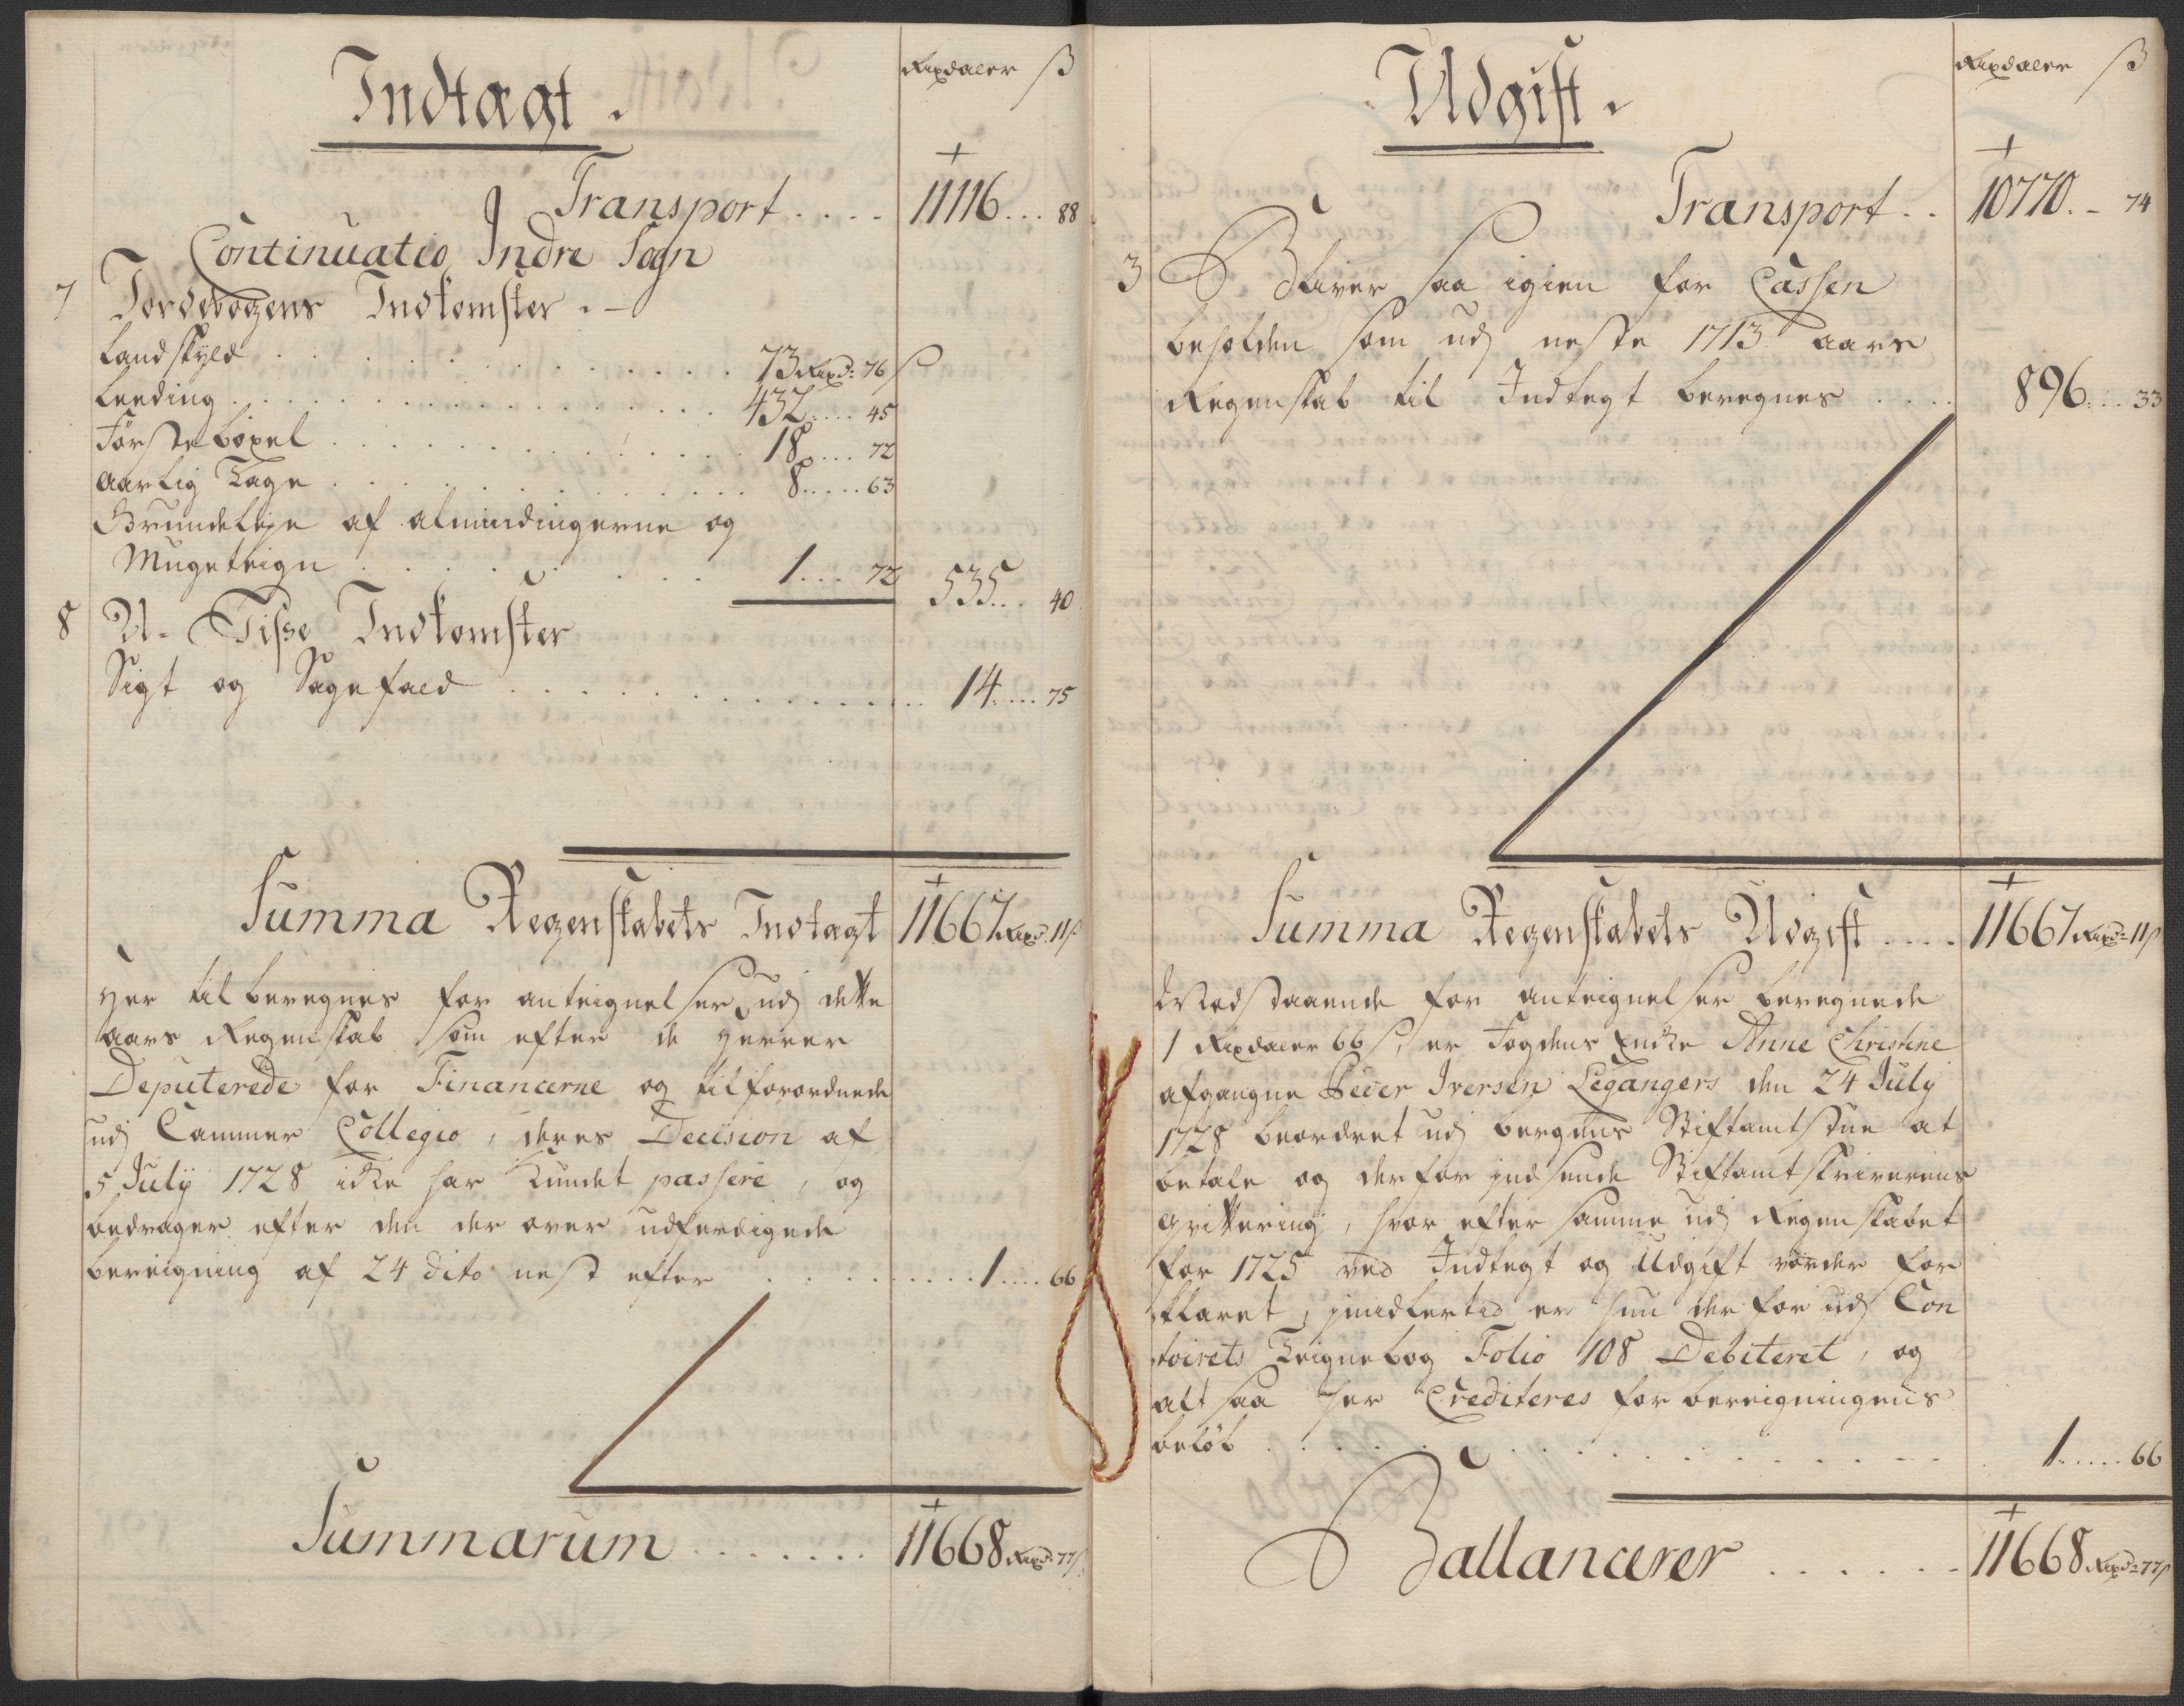 Indtægt.
Rixdaler ß
Transport .... 11116... 88
Continuatio Indre Sogn
7 Jordebogens Indkomster.
Landskyld . . . 73 Rixd: 76 ß
Leeding . . . 432.... 45
Förstebøxel . . . 18.... 72
Aarlig Tage . . . 8..... 63
Grundeleje af almindingerne og
Mugeteign . . . 1... 72 535... 40
8 U-Visse Indkomster
Sigt og Sagefald . . . 14.... 75
Summa Regenskabets Indtægt 11667 Rixd: 11 ß
Her til beregnes for anteignelser udj dette
aars Regenskab som efter de Herrer
Deputerede for Financerne og tilforordnede
udj Cammer Collegio, deres Decision af
5 July 1728 icke har kundet passere, og
bedrager efter den der over udferdigede
bereigning af 24 dito nest efter . . . 1.... 66
Summarum . . . 11668 Rixd: 77 ß
Udgift.
Rixdaler ß
Transport .. 10770.- 74
3 Bliver saa igien for Cassen
beholden som udj neste 1713 aars
Regenskab til Indtegt beregnes . . . 896... 33
Summa Regenskabets Udgift .... 11667 Rixd: 11 ß
Modstaaende for anteignelser beregnede
1 Rixdaler 66 ß, er Fogdens Encke Anne Christine
afgangne Peder Iversen Legangers den 24 July
1728 beordret udj bergens Stiftamtstue at
betale og derfor indsende Stiftamtskriverens
qvittering, hvor efter samme udj Regenskabet
for 1725 ved Indtegt og Udgift vorder for
klaret, jmidlertid er hun derfor udj Con
toirets Teignebog Folio 108 Debiteret, og
alt saa her Crediteres for bereigningens
beløb . . . 1..... 66
Ballancerer . . . 11668 Rixd: 77 ß